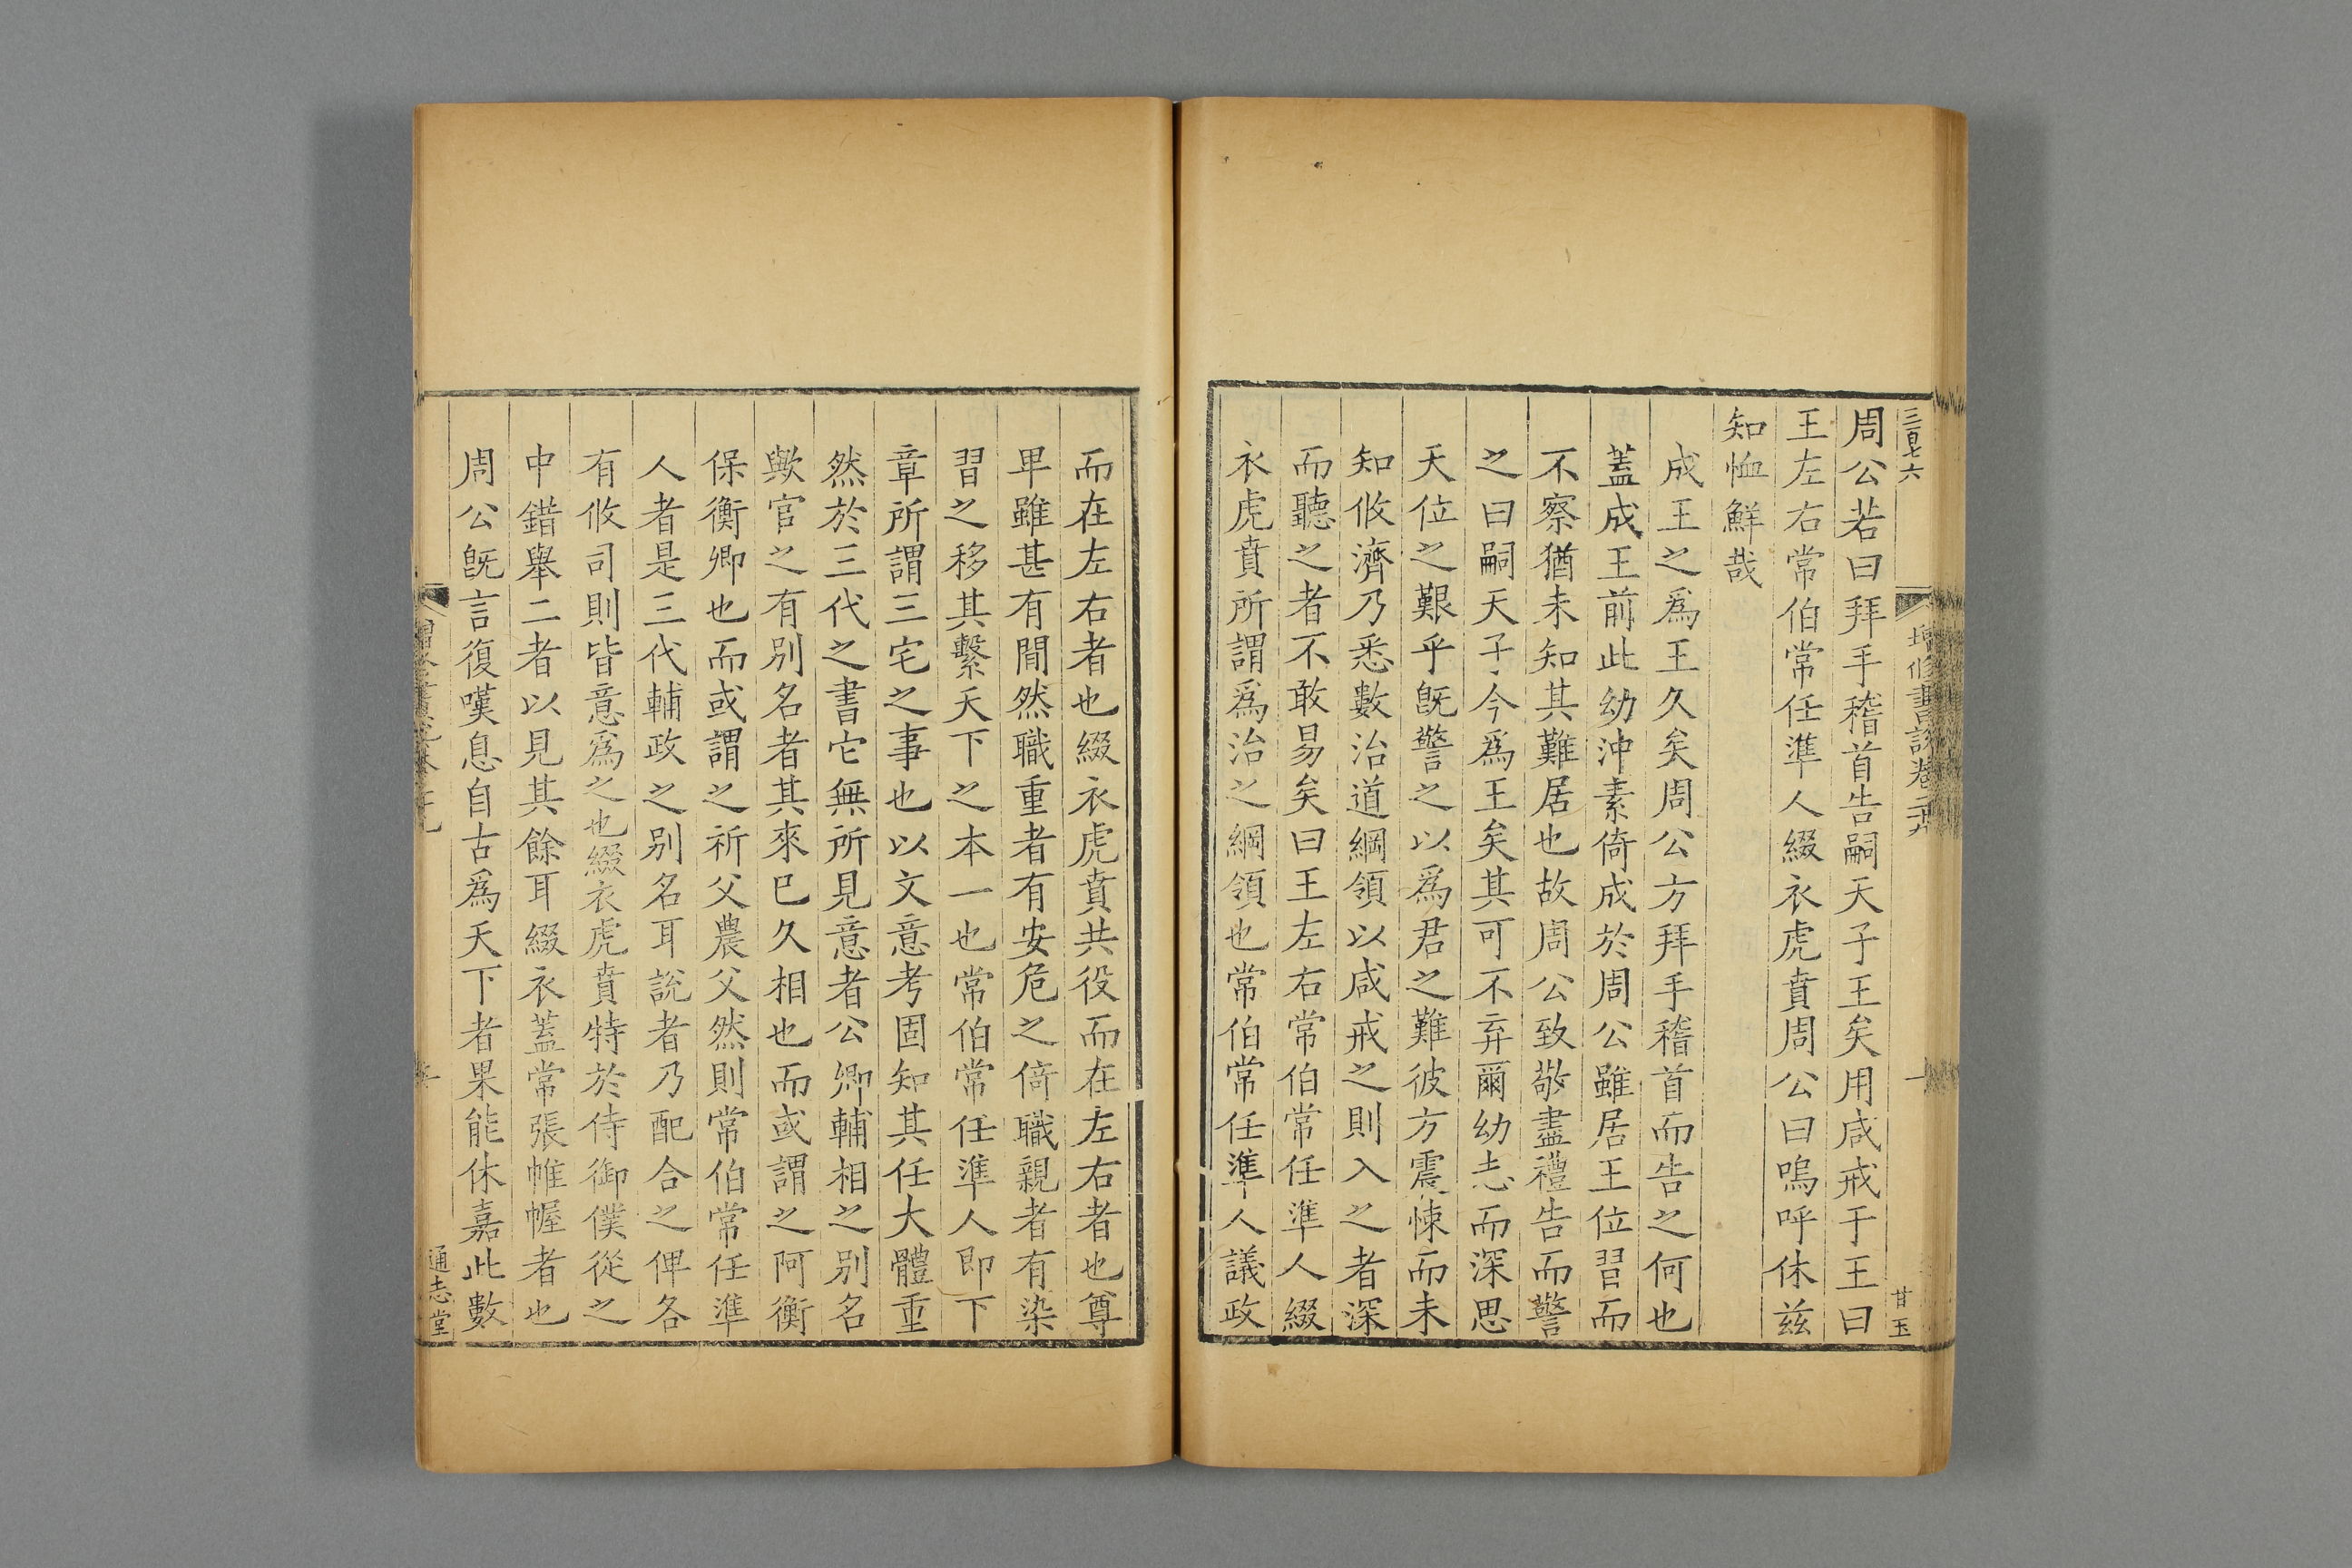 三百七六
增修書說卷二十九
一
甘玉
周公若曰拜手稽首告嗣天子王矣用咸戒于王曰
王左右常伯常任準人綴衣虎賁周公曰嗚呼休茲
知恤鮮哉
成王之爲王久矣周公方拜手稽首而告之何也
蓋成王前此幼沖素倚成於周公雖居王位習而
不察猶未知其難居也故周公致敬盡禮告而警
之曰嗣天子今爲王矣其可不弃爾幼志而深思
天位之艱乎旣警之以爲君之難彼方震悚而未
知攸濟乃悉數治道綱領以咸戒之則入之者深
而聽之者不敢易矣曰王左右常伯常任準人綴
衣虎賁所謂爲治之綱領也常伯常任準人議政
而在左右者也綴衣虎賁共役而在左右者也尊
卑雖甚有閒然職重者有安危之倚職親者有染
習之移其繫天下之本一也常伯常任準人即下
章所謂三宅之事也以文意考固知其任大體重
然於三代之書它無所見意者公卿輔相之別名
歟官之有別名者其來已久相也而或謂之阿衡
保衡卿也而或謂之祈父農父然則常伯常任準
人者是三代輔政之别名耳說者乃配合之俾各
有攸司則皆意爲之也綴衣虎賁特於侍御僕從之
中錯舉二者以見其餘耳綴衣蓋常張帷幄者也
周公旣言復嘆息自古爲天下者果能休嘉此數
通志堂